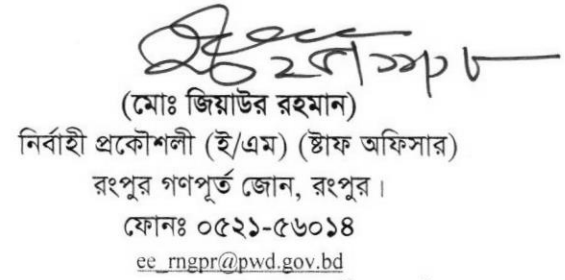 (মোঃ জিয়াউর রহমান)
নির্বাহী প্রকৌশলী (ই/এম) (ষ্টাফ অফিসার)
রংপুর গণপূর্ত জোন, রংপুর।
ফোনঃ ০৫২১-৫৬০১৪
ee_rngpr@pwd.gov.bd